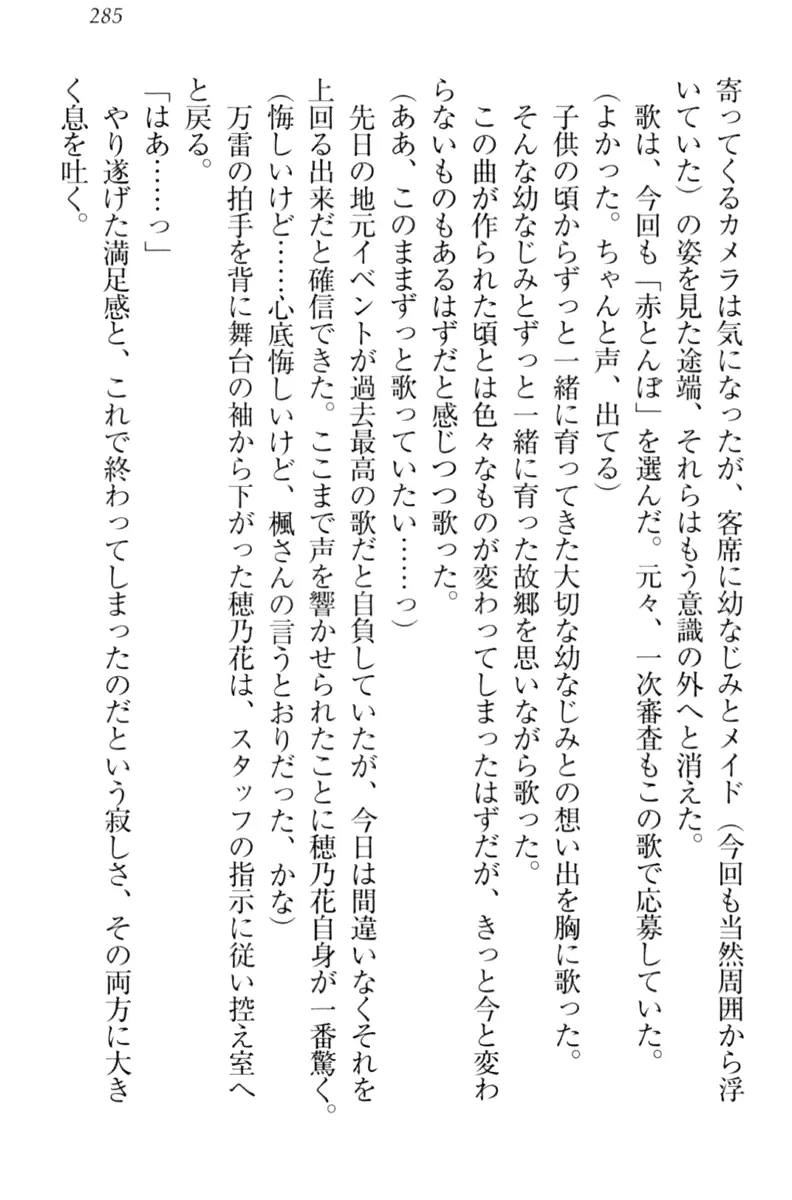 285
寄ってくるカメラは気になったが、客席に幼なじみとメイド（今回も当然周囲から浮
いていた）の姿を見た途端、それらはもう意識の外へと消えた。
歌は、今回も「赤とんぼ」を選んだ。元々、一次審査もこの歌で応募していた。
（よかった。ちゃんと声、出てる）
子供の頃からずっと一緒に育ってきた大切な幼なじみとの想い出を胸に歌った。
そんな幼なじみとずっと一緒に育った故郷を思いながら歌った。
この曲が作られた頃とは色々なものが変わってしまったはずだが、きっと今と変わ
らないものもあるはずだと感じつつ歌った。
（ああ、このままずっと歌っていたい……っ）
先日の地元イベントが過去最高の歌だと自負していたが、今日は間違いなくそれを
上回る出来だと確信できた。ここまで声を響かせられたことに穂乃花自身が一番驚く。
（悔しいけど……心底悔しいけど、楓さんの言うとおりだった、かな）
万雷の拍手を背に舞台の袖から下がった穂乃花は、スタッフの指示に従い控え室へ
と戻る。
「はあ……っ」
やり遂げた満足感と、これで終わってしまったのだという寂しさ、その両方に大き
く息を吐く。